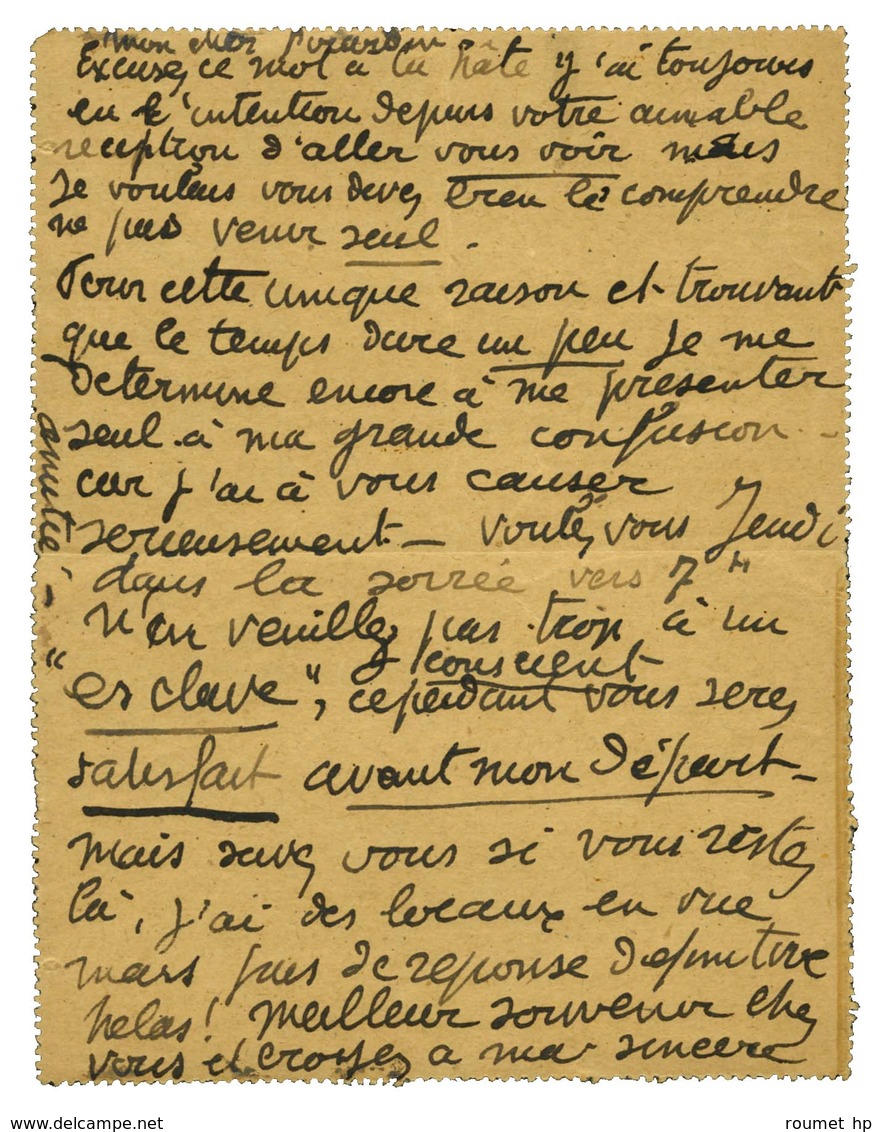 mon cher Girardin
Excusez ce mot à la hâte j'ai toujours
eu l'intention depuis votre aimable
reception d'aller vous voir mais
Je voulais vous devez bien le comprendre
ne pas venir seul.
Pour cette unique raison et trouvant
que le temps dure un peu je me
determine encore à me presenter
seul à ma grande confusion -
car j'ai à vous causer
serieusement - voulez vous Jeudi
dans la soirée vers 7h
N'en veuillez pas trop à un
" esclave", conscient
cependant vous serez
satisfait avant mon départ -
mais savez vous si vous restez
là, j'ai des locaux en vue
mais pas de reponse definitive
helas! Meilleur souvenir chez
vous et croyez a ma sincère
amitié -
roumet hp